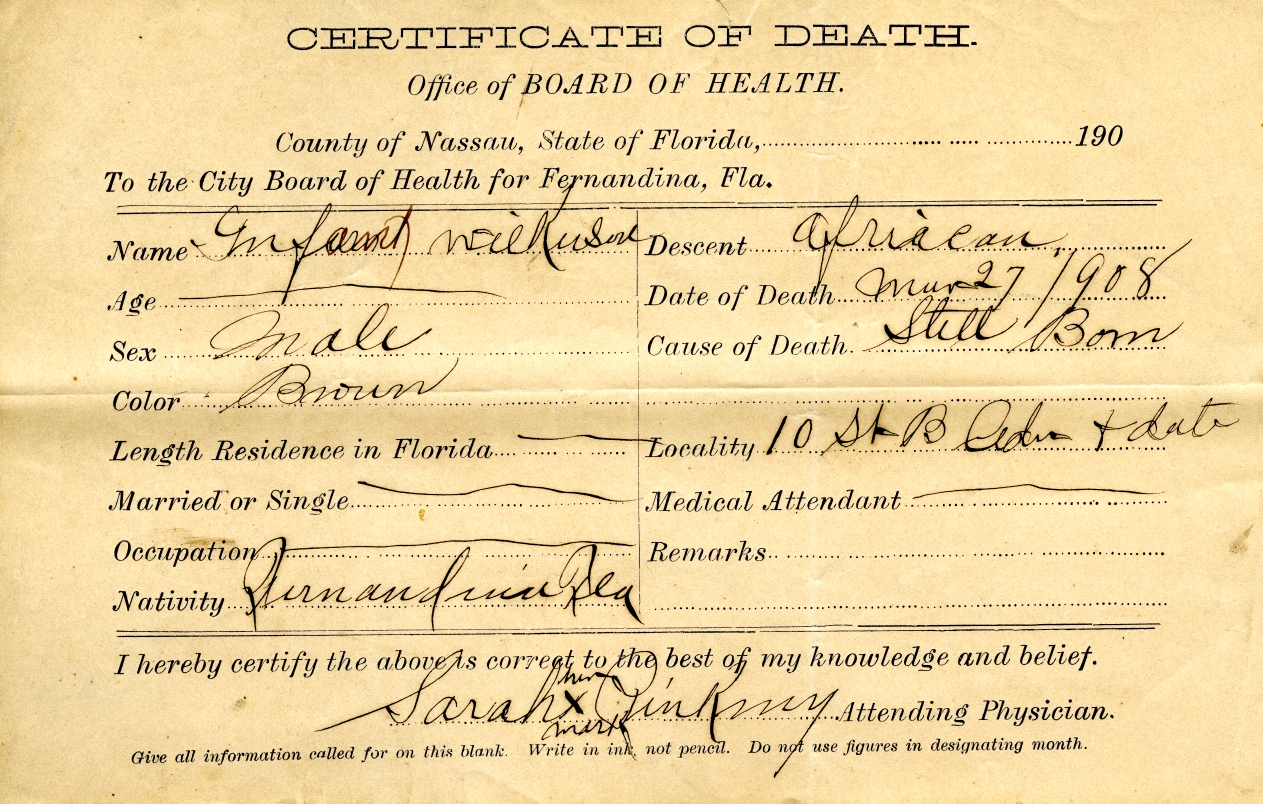 CERTIFICATE OF DEATH.
Office of BOARD OF HEALTH.
County of Nassau, State of Florida, 190
To the City Board of Health for Fernandina, Fla.
Name Infant Wilkinson
Descent African
Age
Date of Death Mar 27 1908
Sex Male
Cause of Death. Still Born
Color Brown
Length Residence in Florida
Locality 10 St B &
Married or Single
Medical Attendant
Occupation
Remarks
Nativity Fernandina Fla
I hereby certify the above is correct to the best of my knowledge and belief.
Sarah her x mark Pinkney Attending Physician.
Give all information called for on this blank. Write in ink, not pencil. Do not use figures in designating month.